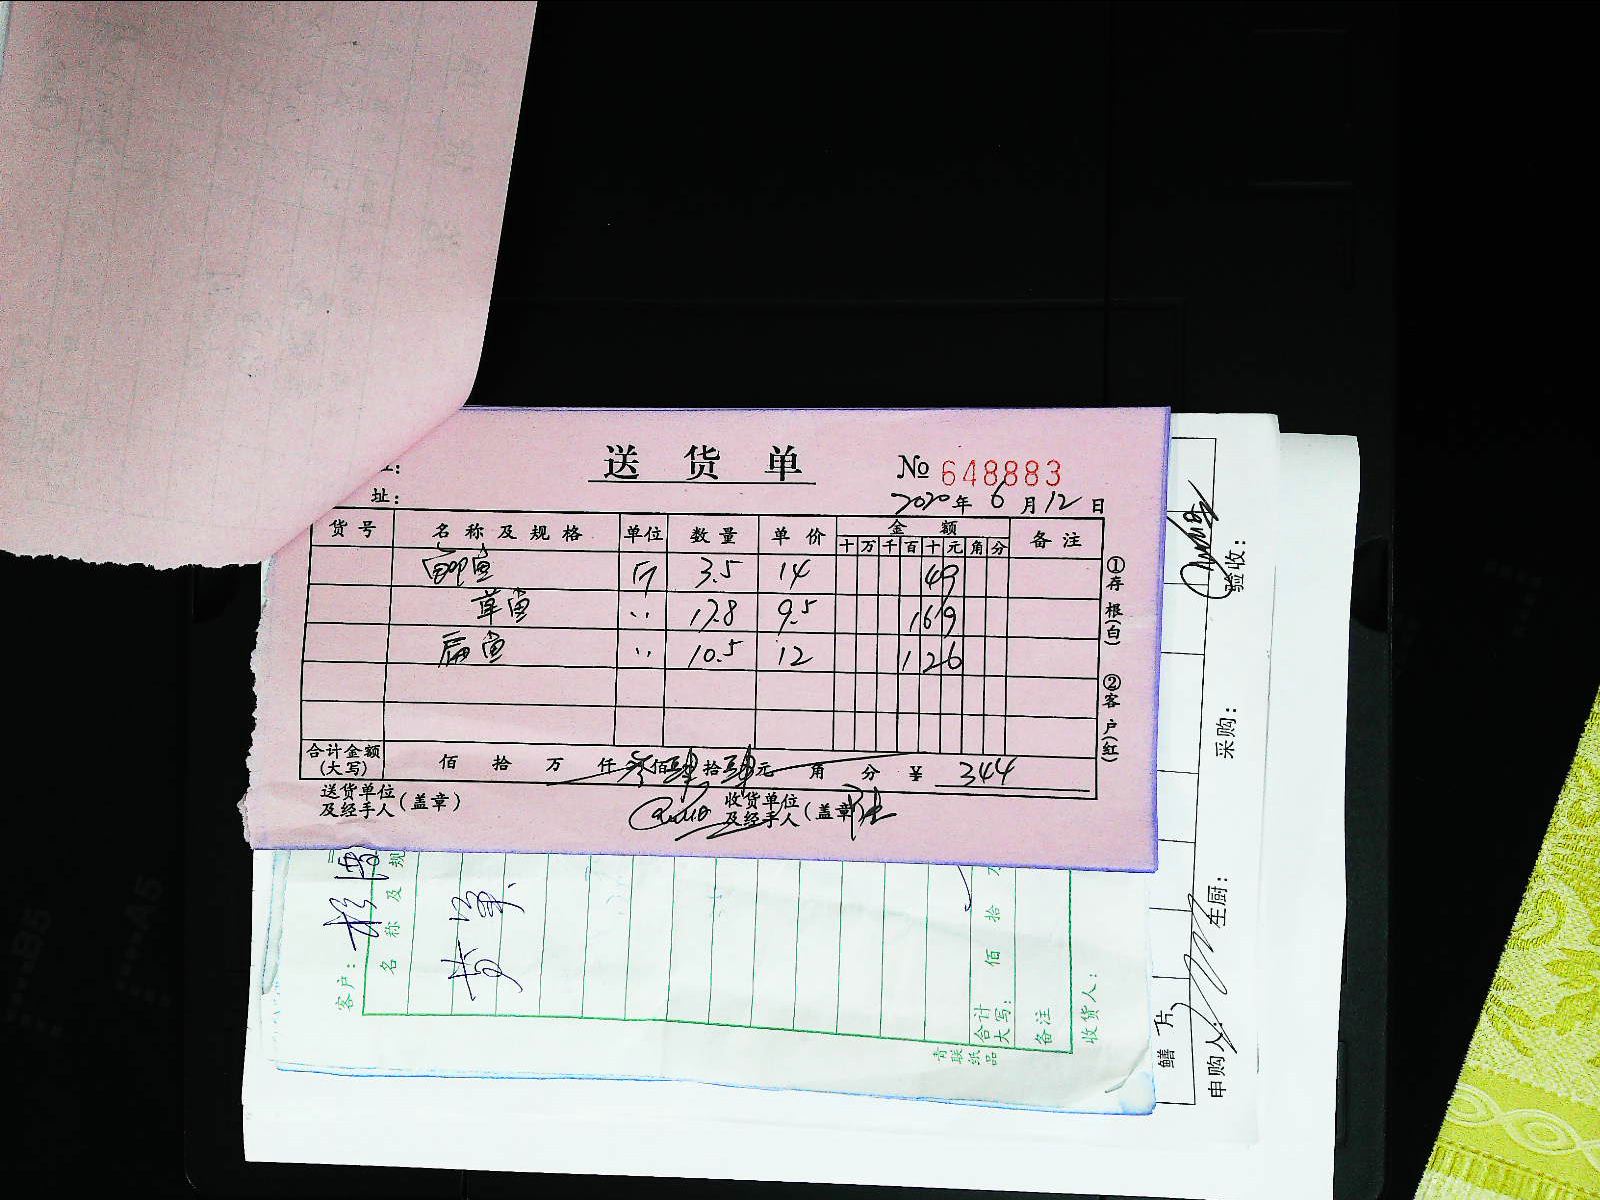 送货单 № 648883
址：
2020年 6月 12日
货号 名称及规格 单位 数量 单价 金额 备注
十 万 千 百 十 元 角 分
鲫鱼 斤 3.5 14 49
草鱼 〃 17.8 9.5 169
扁鱼 〃 10.5 12 126
合计金额 佰 拾 万 仟 叁佰肆拾肆元 角 分 ¥ 344
(大写)
送货单位 (盖章) 收货单位 (盖章)
及经手人 及经手人
①存根(白) ②客户(红)
客户：
名称及规
黄
合计
大写： 佰 拾 万
备注
收货人：
青联纸品
鳝片
申购人 生厨： 采购： 验收：